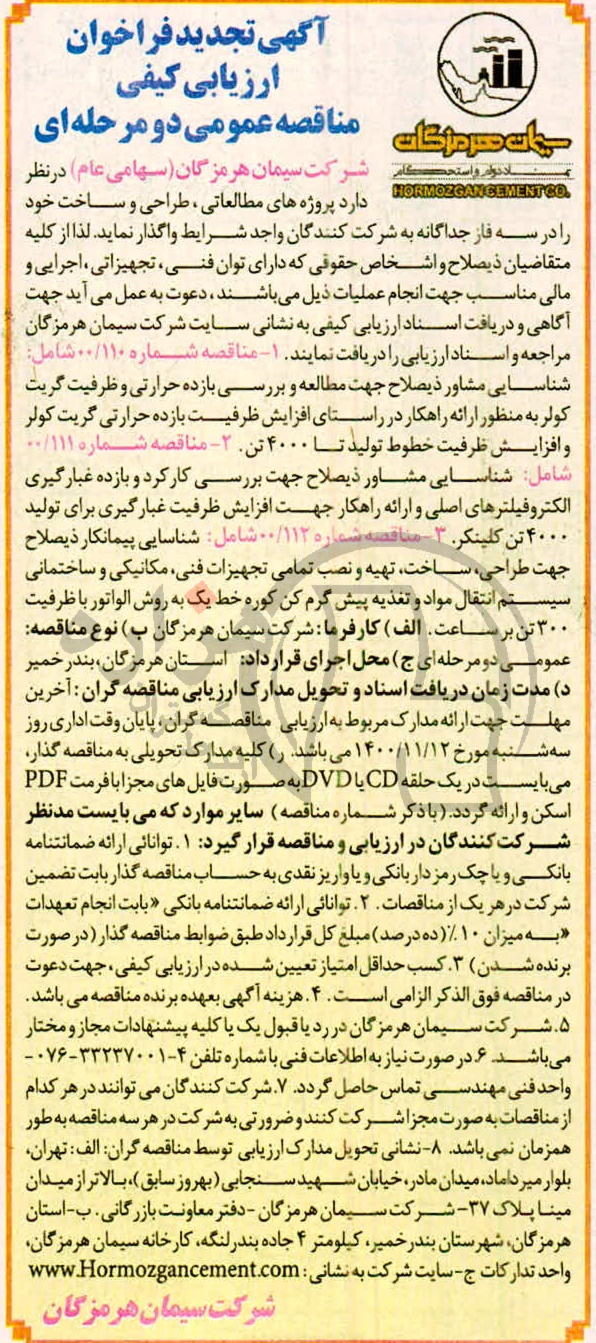 آگهی تجدید فراخوان
ارزیابی کیفی
مناقصه عمومی دو مرحله‌ای
سیمان هرمزگان
نماد دوام و استحکام
HORMOZGAN CEMENT CO.
شرکت سیمان هرمزگان (سهامی عام) درنظر
دارد پروژه های مطالعاتی، طراحی و ساخت خود
را در سه فاز جداگانه به شرکت کنندگان واجد شرایط واگذار نماید. لذا از کلیه
متقاضیان ذیصلاح و اشخاص حقوقی که دارای توان فنی، تجهیزاتی، اجرایی و
مالی مناسب جهت انجام عملیات ذیل می‌باشند، دعوت به عمل می آید جهت
آگاهی و دریافت اسناد ارزیابی کیفی به نشانی سایت شرکت سیمان هرمزگان
مراجعه و اسناد ارزیابی را دریافت نمایند. ۱-مناقصه شماره ۰۰/۱۱۰ شامل:
شناسایی مشاور ذیصلاح جهت مطالعه و بررسی بازده حرارتی و ظرفیت گریت
کولر به منظور ارائه راهکار در راستای افزایش ظرفیت بازده حرارتی گریت کولر
و افزایش ظرفیت خطوط تولید تا ۴۰۰۰ تن. ۲-مناقصه شماره ۰۰/۱۱۱
شامل: شناسایی مشاور ذیصلاح جهت بررسی کارکرد و بازده غبارگیری
الکتروفیلترهای اصلی و ارائه راهکار جهت افزایش ظرفیت غبارگیری برای تولید
۴۰۰۰ تن کلینکر. ۳-مناقصه شماره ۰۰/۱۱۲ شامل: شناسایی پیمانکار ذیصلاح
جهت طراحی، ساخت، تهیه و نصب تمامی تجهیزات فنی، مکانیکی و ساختمانی
سیستم انتقال مواد و تغذیه پیش گرم کن کوره خط یک به روش الواتور با ظرفیت
۳۰۰ تن بر ساعت. الف) کارفرما: شرکت سیمان هرمزگان ب) نوع مناقصه:
عمومی دو مرحله ای ج) محل اجرای قرارداد: استان هرمزگان، بندر خمیر
د) مدت زمان دریافت اسناد و تحویل مدارک ارزیابی مناقصه گران: آخرین
مهلت جهت ارائه مدارک مربوط به ارزیابی مناقصه گران، پایان وقت اداری روز
سه‌شنبه مورخ ۱۴۰۰/۱۱/۱۲ می باشد. ر) کلیه مدارک تحویلی به مناقصه گذار،
می‌بایست در یک حلقه CD یا DVD به صورت فایل های مجزا با فرمت PDF
اسکن و ارائه گردد. (با ذکر شماره مناقصه) سایر موارد که می بایست مدنظر
شرکت کنندگان در ارزیابی و مناقصه قرار گیرد: ۱. توانائی ارائه ضمانتنامه
بانکی و یا چک رمز دار بانکی و یا واریز نقدی به حساب مناقصه گذار بابت تضمین
شرکت در هر یک از مناقصات. ۲. توانائی ارائه ضمانتنامه بانکی «بابت انجام تعهدات
«به میزان ۱۰٪ (ده درصد) مبلغ کل قرارداد طبق ضوابط مناقصه گذار (در صورت
برنده شدن) ۳. کسب حداقل امتیاز تعیین شده در ارزیابی کیفی، جهت دعوت
در مناقصه فوق الذکر الزامی است. ۴. هزینه آگهی بعهده برنده مناقصه می باشد.
۵. شرکت سیمان هرمزگان در رد یا قبول یک یا کلیه پیشنهادات مجاز و مختار
می‌باشد. ۶. در صورت نیاز به اطلاعات فنی با شماره تلفن ۴-۳۳۲۳۷۰۰۱-۰۷۶-
واحد فنی مهندسی تماس حاصل گردد. ۷. شرکت کنندگان می توانند در هر کدام
از مناقصات به صورت مجزا شرکت کنند و ضرورتی به شرکت در هر سه مناقصه به طور
همزمان نمی باشد. ۸-نشانی تحویل مدارک ارزیابی توسط مناقصه گران: الف: تهران،
بلوار میرداماد، میدان مادر، خیابان شهید سنجابی (بهروز سابق)، بالاتر از میدان
مینا پلاک ۳۷- شرکت سیمان هرمزگان -دفتر معاونت بازرگانی. ب-استان
هرمزگان، شهرستان بندرخمیر، کیلومتر ۴ جاده بندرلنگه، کارخانه سیمان هرمزگان،
واحد تدارکات ج-سایت شرکت به نشانی: www.Hormozgancement.com
شرکت سیمان هرمزگان